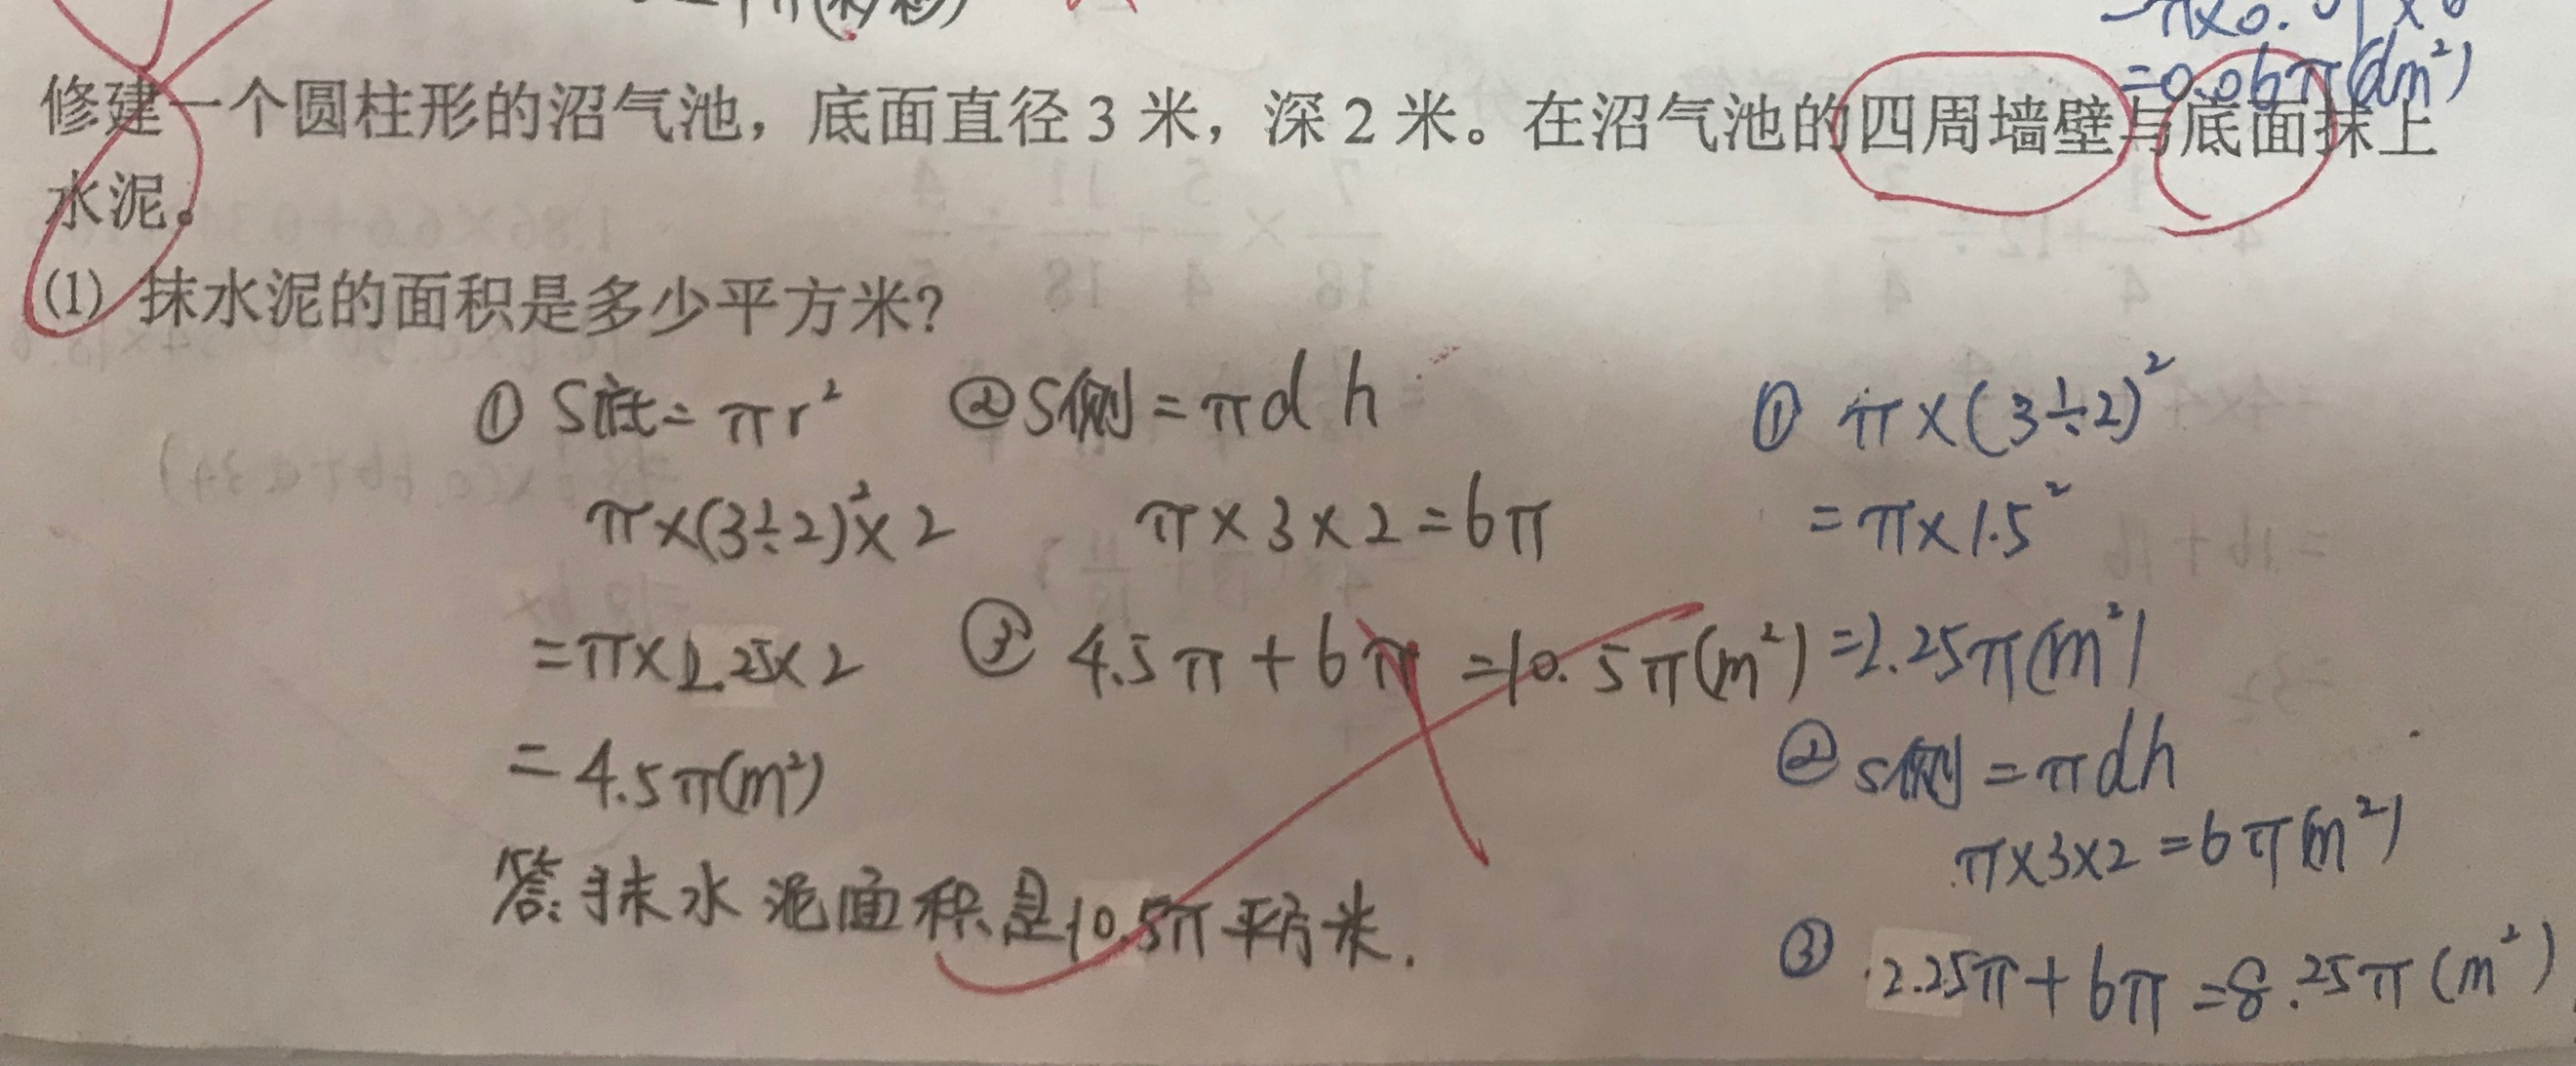 =0.06π(dm²)
修建一个圆柱形的沼气池，底面直径3米，深2米。在沼气池的四周墙壁与底面抹上
水泥。
(1) 抹水泥的面积是多少平方米？
① S底=πr²
π×(3÷2)²×2
=π×2.25×2
=4.5π(m²)
② S侧=πdh
π×3×2=6π
③ 4.5π+6π=10.5π(m²)
答:抹水泥面积是10.5π平方米.
① π×(3÷2)²
=π×1.5²
=2.25π(m²)
② S侧=πdh
π×3×2=6π(m²)
③ 2.25π+6π=8.25π(m²)